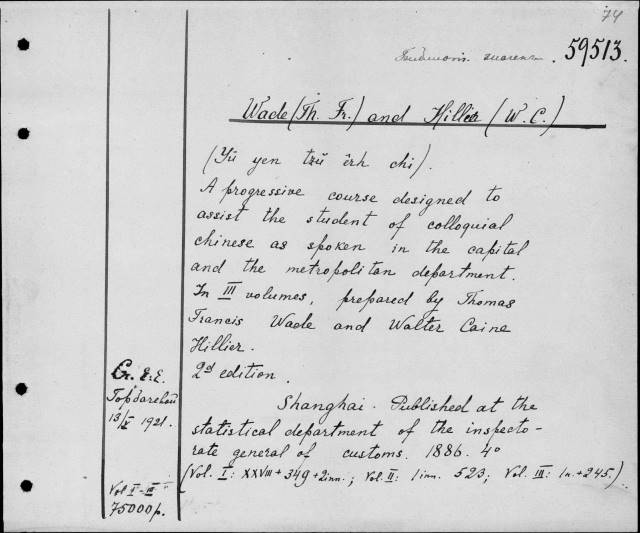 74
59513.
Wade (Th. Fr.) and Hillier (W. C.)
(Yü yen tzŭ êrh chi).
A progressive course designed to
assist the student of colloquial
chinese as spoken in the capital
and the metropolitan department.
In III volumes, prepared by Thomas
Francis Wade and Walter Caine
Hillier.
2d edition.
Shanghai. Published at the
statistical department of the inspecto-
rate general of customs. 1886. 4o
(Vol. I: XXVIII + 349 + 2 inn.; Vol. II: 1 inn. 523; Vol. III: 1n. + 245.)
13/X 1921.
Vol I-III
75000р.